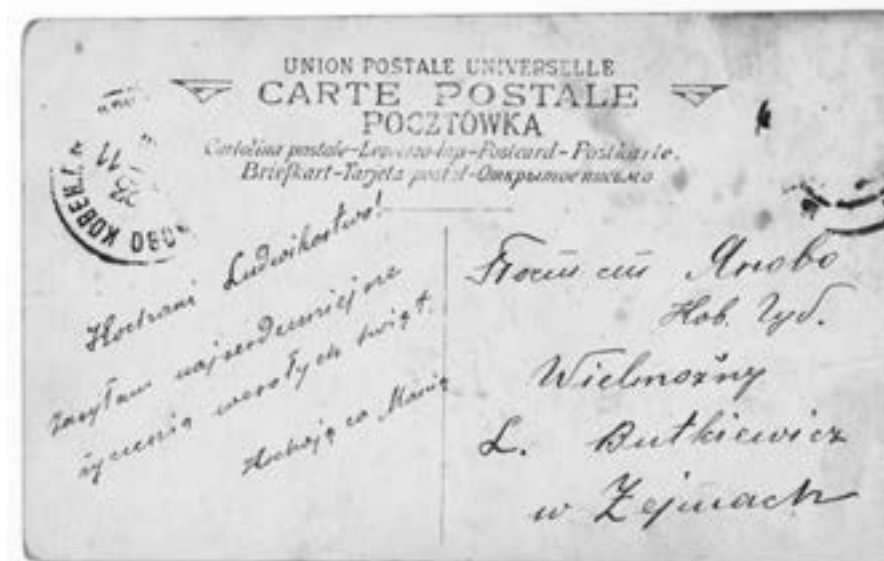 UNION POSTALE UNIVERSELLE
CARTE POSTALE
POCZTÓWKA
Cartolina postale-Levelezo-lap-Postcard-Postkarte.
Briefkart-Tarjeta postal-Открытое письмо
23 11
ОВО КОВЕН
Kochani Ludwikostwo!
Zasyłam najserdeczniejsze
życzenia wesołych świąt.
Kochająca Mania
Яново
Ков. Губ.
Wielmożny
L. Butkiewicz
w Żejmach